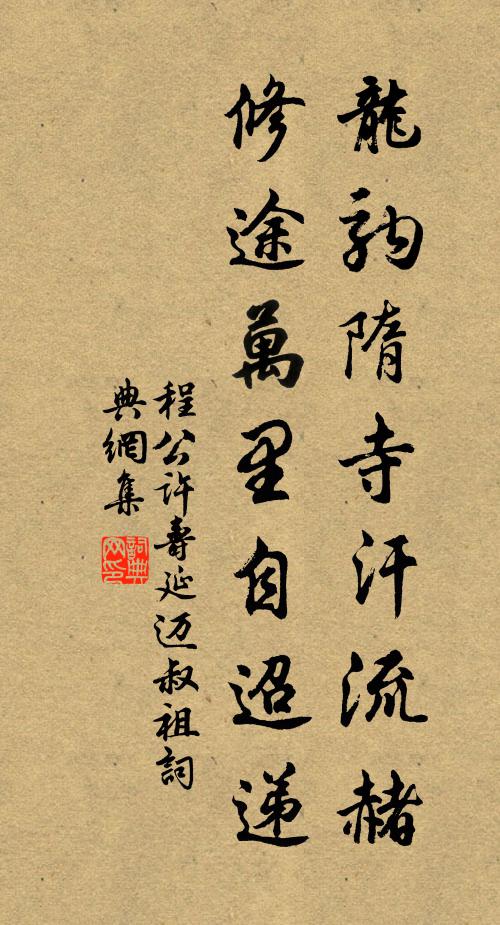 龍驹隋寺汗流赭
修途萬里自迢递
程公许壽延迈叔祖詞
典網集
詞典
网印